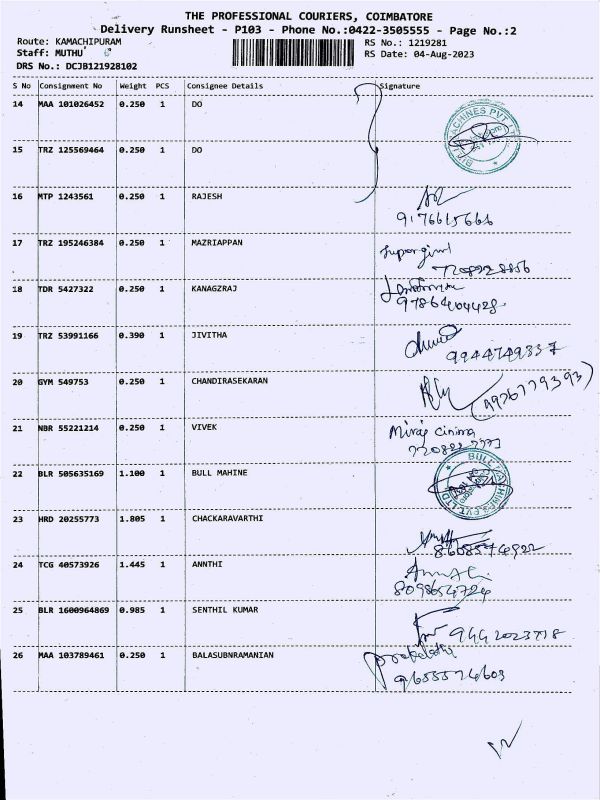 THE PROFESSIONAL COURIERS, COIMBATORE
Delivery Runsheet - P103 - Phone No.:0422-3505555 - Page No.:2
Route: KAMACHIPURAM RS No.: 1219281
Staff: MUTHU RS Date: 04-Aug-2023
DRS No.: DCJB121928102
S No Consignment No Weight PCS Consignee Details Signature
14 MAA 101026452 0.250 1 DO
15 TRZ 125569464 0.250 1 DO
16 MTP 1243561 0.250 1 RAJESH
9176615666
17 TRZ 195246384 0.250 1 MAZRIAPPAN
18 TDR 5427322 0.250 1 KANAGZRAJ
9786404428
19 TRZ 53991166 0.390 1 JIVITHA
9944749337
20 GYM 549753 0.250 1 CHANDIRASEKARAN
21 NBR 55221214 0.250 1 VIVEK
Miraj Cinima
22 BLR 505635169 1.100 1 BULL MAHINE
BULL MACHINES PVT LTD
23 HRD 20255773 1.805 1 CHACKARAVARTHI
24 TCG 40573926 1.445 1 ANNTHI
8098654724
25 BLR 1600964869 0.985 1 SENTHIL KUMAR
26 MAA 103789461 0.250 1 BALASUBNRAMANIAN
9655574603